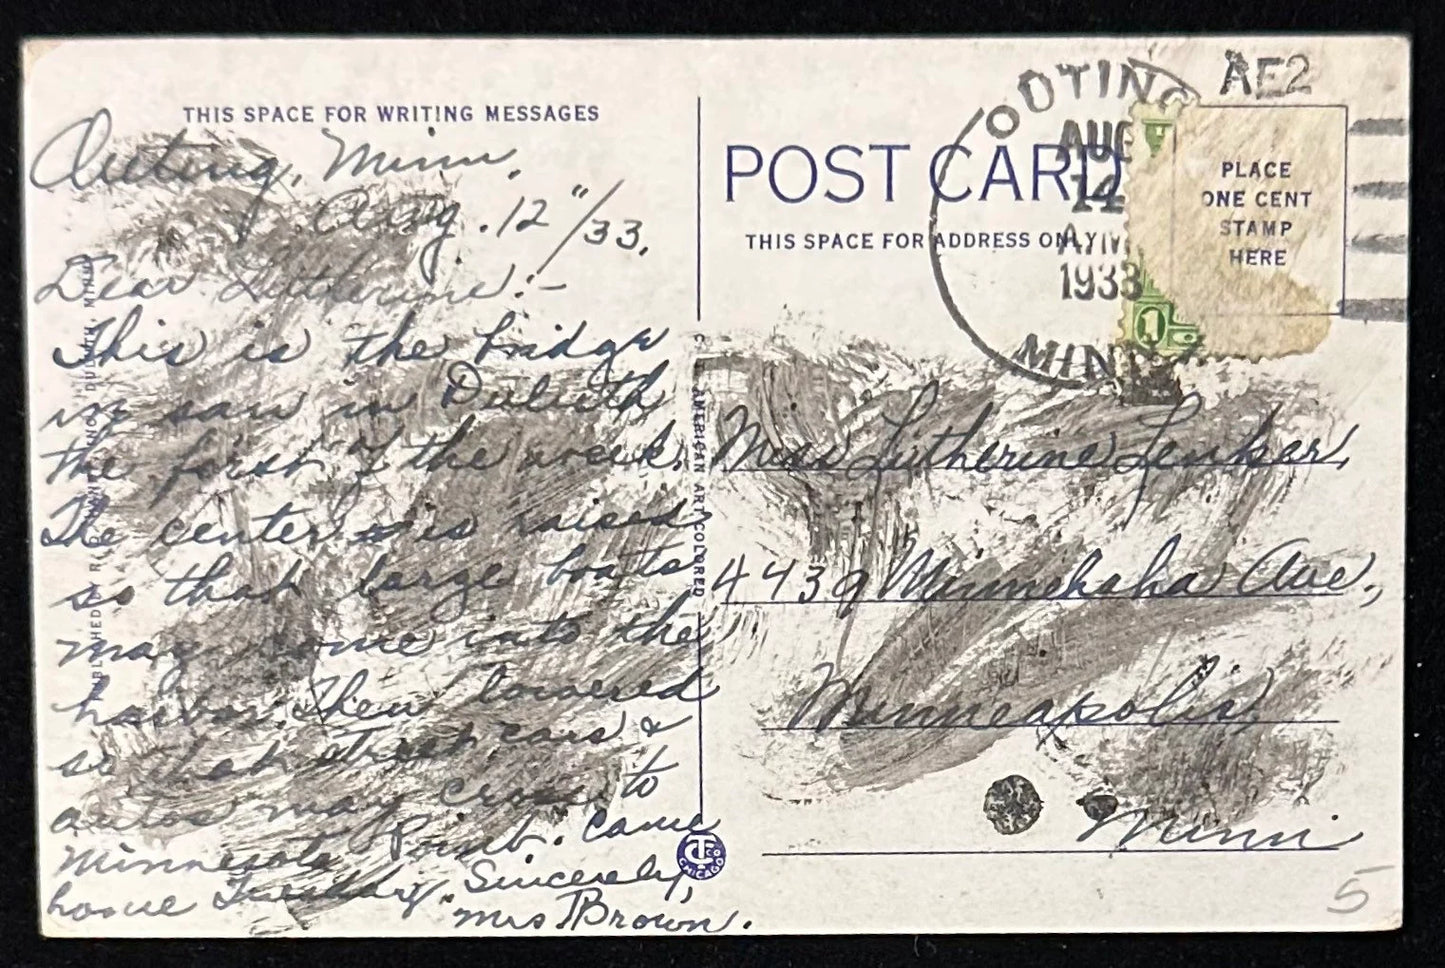 THIS SPACE FOR WRITING MESSAGES
Outing, Minn.
Aug. 12"/33.
Dear Lutherine:-
This is the bridge
we saw in Duluth
the first of the week.
The center is raised
so that large boats
may come into the
harbor. Then lowered
so that street cars &
autos may cross to
Minnesota Point. Came
home Tuesday. Sincerely,
Mrs Brown.
C. T. AMERICAN ART COLORED
CT CO
CHICAGO
POST CARD
THIS SPACE FOR ADDRESS ONLY
OUTING
AUG
14
A.M
1933
MINN
AE2
PLACE
ONE CENT
STAMP
HERE
1
Miss Lutherine
4439 Minnehaha Ave.,
Minneapolis,
Minn
5